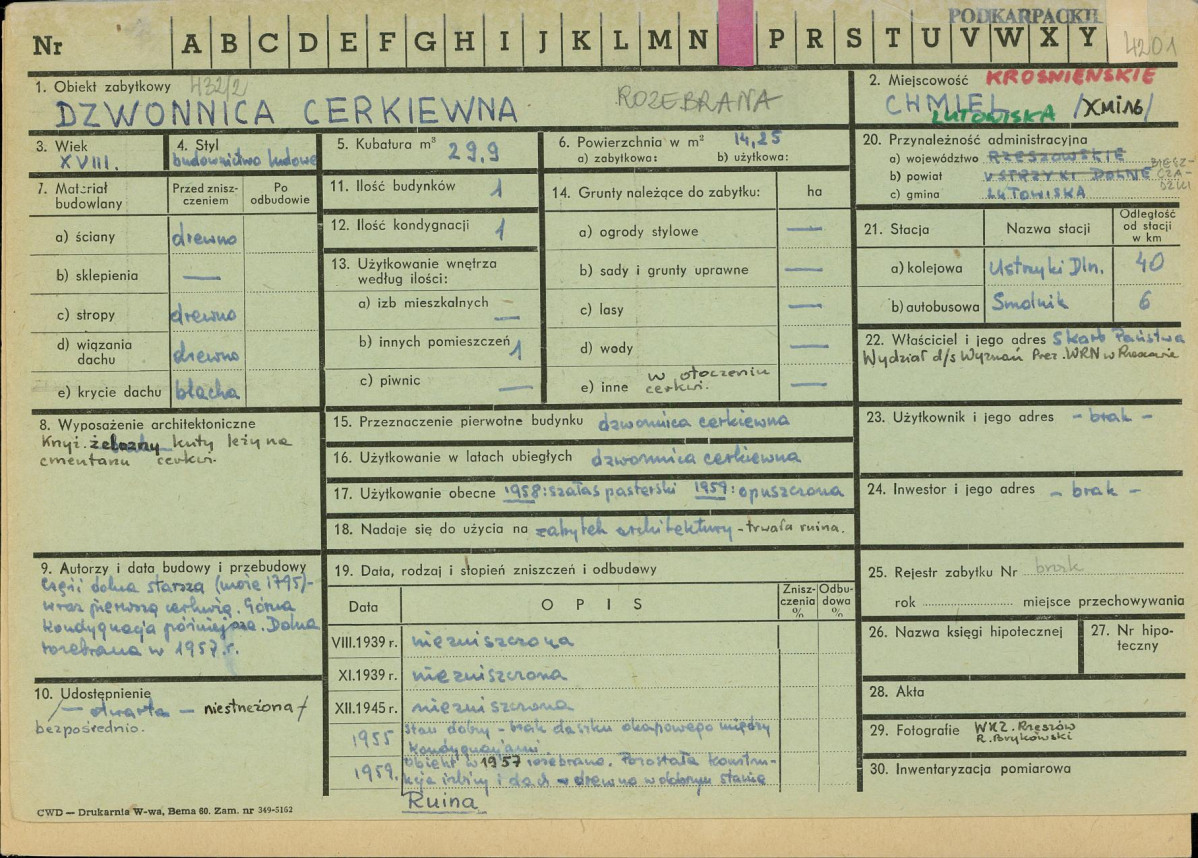 PODKARPACKIE
Nr A B C D E F G H I J K L M N P R S T U V W X Y 4201
1. Obiekt zabytkowy 432/2
DZWONNICA CERKIEWNA ROZEBRANA
2. Miejscowość KROŚNIEŃSKIE
CHMIEL /XM
LUTOWISKA
3. Wiek
XVIII.
4. Styl
budownictwo ludowe
5. Kubatura m³ 29,9
6. Powierzchnia w m² 14,25
a) zabytkowa: b) użytkowa:
20. Przynależność administracyjna
a) województwo RZESZOWSKIE
b) powiat USTRZYKI DOLNE BIESZ-
CZA-
DZKI
c) gmina LUTOWISKA
7. Materiał budowlany
Przed zniszczeniem
Po odbudowie
a) ściany drewno
b) sklepienia —
c) stropy drewno
d) wiązania dachu drewno
e) krycie dachu blacha
11. Ilość budynków 1
12. Ilość kondygnacji 1
13. Użytkowanie wnętrza
według ilości:
a) izb mieszkalnych —
b) innych pomieszczeń 1
c) piwnic —
14. Grunty należące do zabytku: ha
a) ogrody stylowe —
b) sady i grunty uprawne —
c) lasy —
d) wody —
e) inne w otoczeniu cerkwi. —
21. Stacja Nazwa stacji Odległość od stacji w km
a) kolejowa Ustrzyki Dln. 40
b) autobusowa Smolnik 6
22. Właściciel i jego adres Skarb Państwa
Wydział d/s Wyznań Prez. WRN w Rzeszowie
8. Wyposażenie architektoniczne
Krzyż żelazny kuty leży na
cmentarzu cerkiew.
15. Przeznaczenie pierwotne budynku dzwonnica cerkiewna
16. Użytkowanie w latach ubiegłych dzwonnica cerkiewna
17. Użytkowanie obecne 1958: szałas pasterski 1959: opuszczona
18. Nadaje się do użycia na zabytek architektury - trwała ruina.
23. Użytkownik i jego adres - brak -
24. Inwestor i jego adres - brak -
9. Autorzy i data budowy i przebudowy
Część dolna starsza (może 1795) -
wraz pierwszą cerkwią. Górna
kondygnacja późniejsza. Dolna
rozebrana w 1957 r.
10. Udostępnienie
/— otwarta — nieistrzeżona/
bezpośrednio.
19. Data, rodzaj i stopień zniszczeń i odbudowy
Data OPIS Zniszczenia % Odbudowa %
VIII.1939 r. niezniszczona
XI.1939 r. niezniszczona
XII.1945 r. niezniszczona
1955 Stan dobry - brak daszku okapowego między
kondygnacjami.
1959. Obiekt w 1957 rozebrano. Pozostała konstru-
kcja izbicy i dach - drewno w dobrym stanie
Ruina
25. Rejestr zabytku Nr brak
rok miejsce przechowywania
26. Nazwa księgi hipotecznej
27. Nr hipoteczny
28. Akta
29. Fotografie WKZ. Rzeszów
R. Brykowski
30. Inwentaryzacja pomiarowa
CWD — Drukarnia W-wa, Bema 60. Zam. nr 349-5162